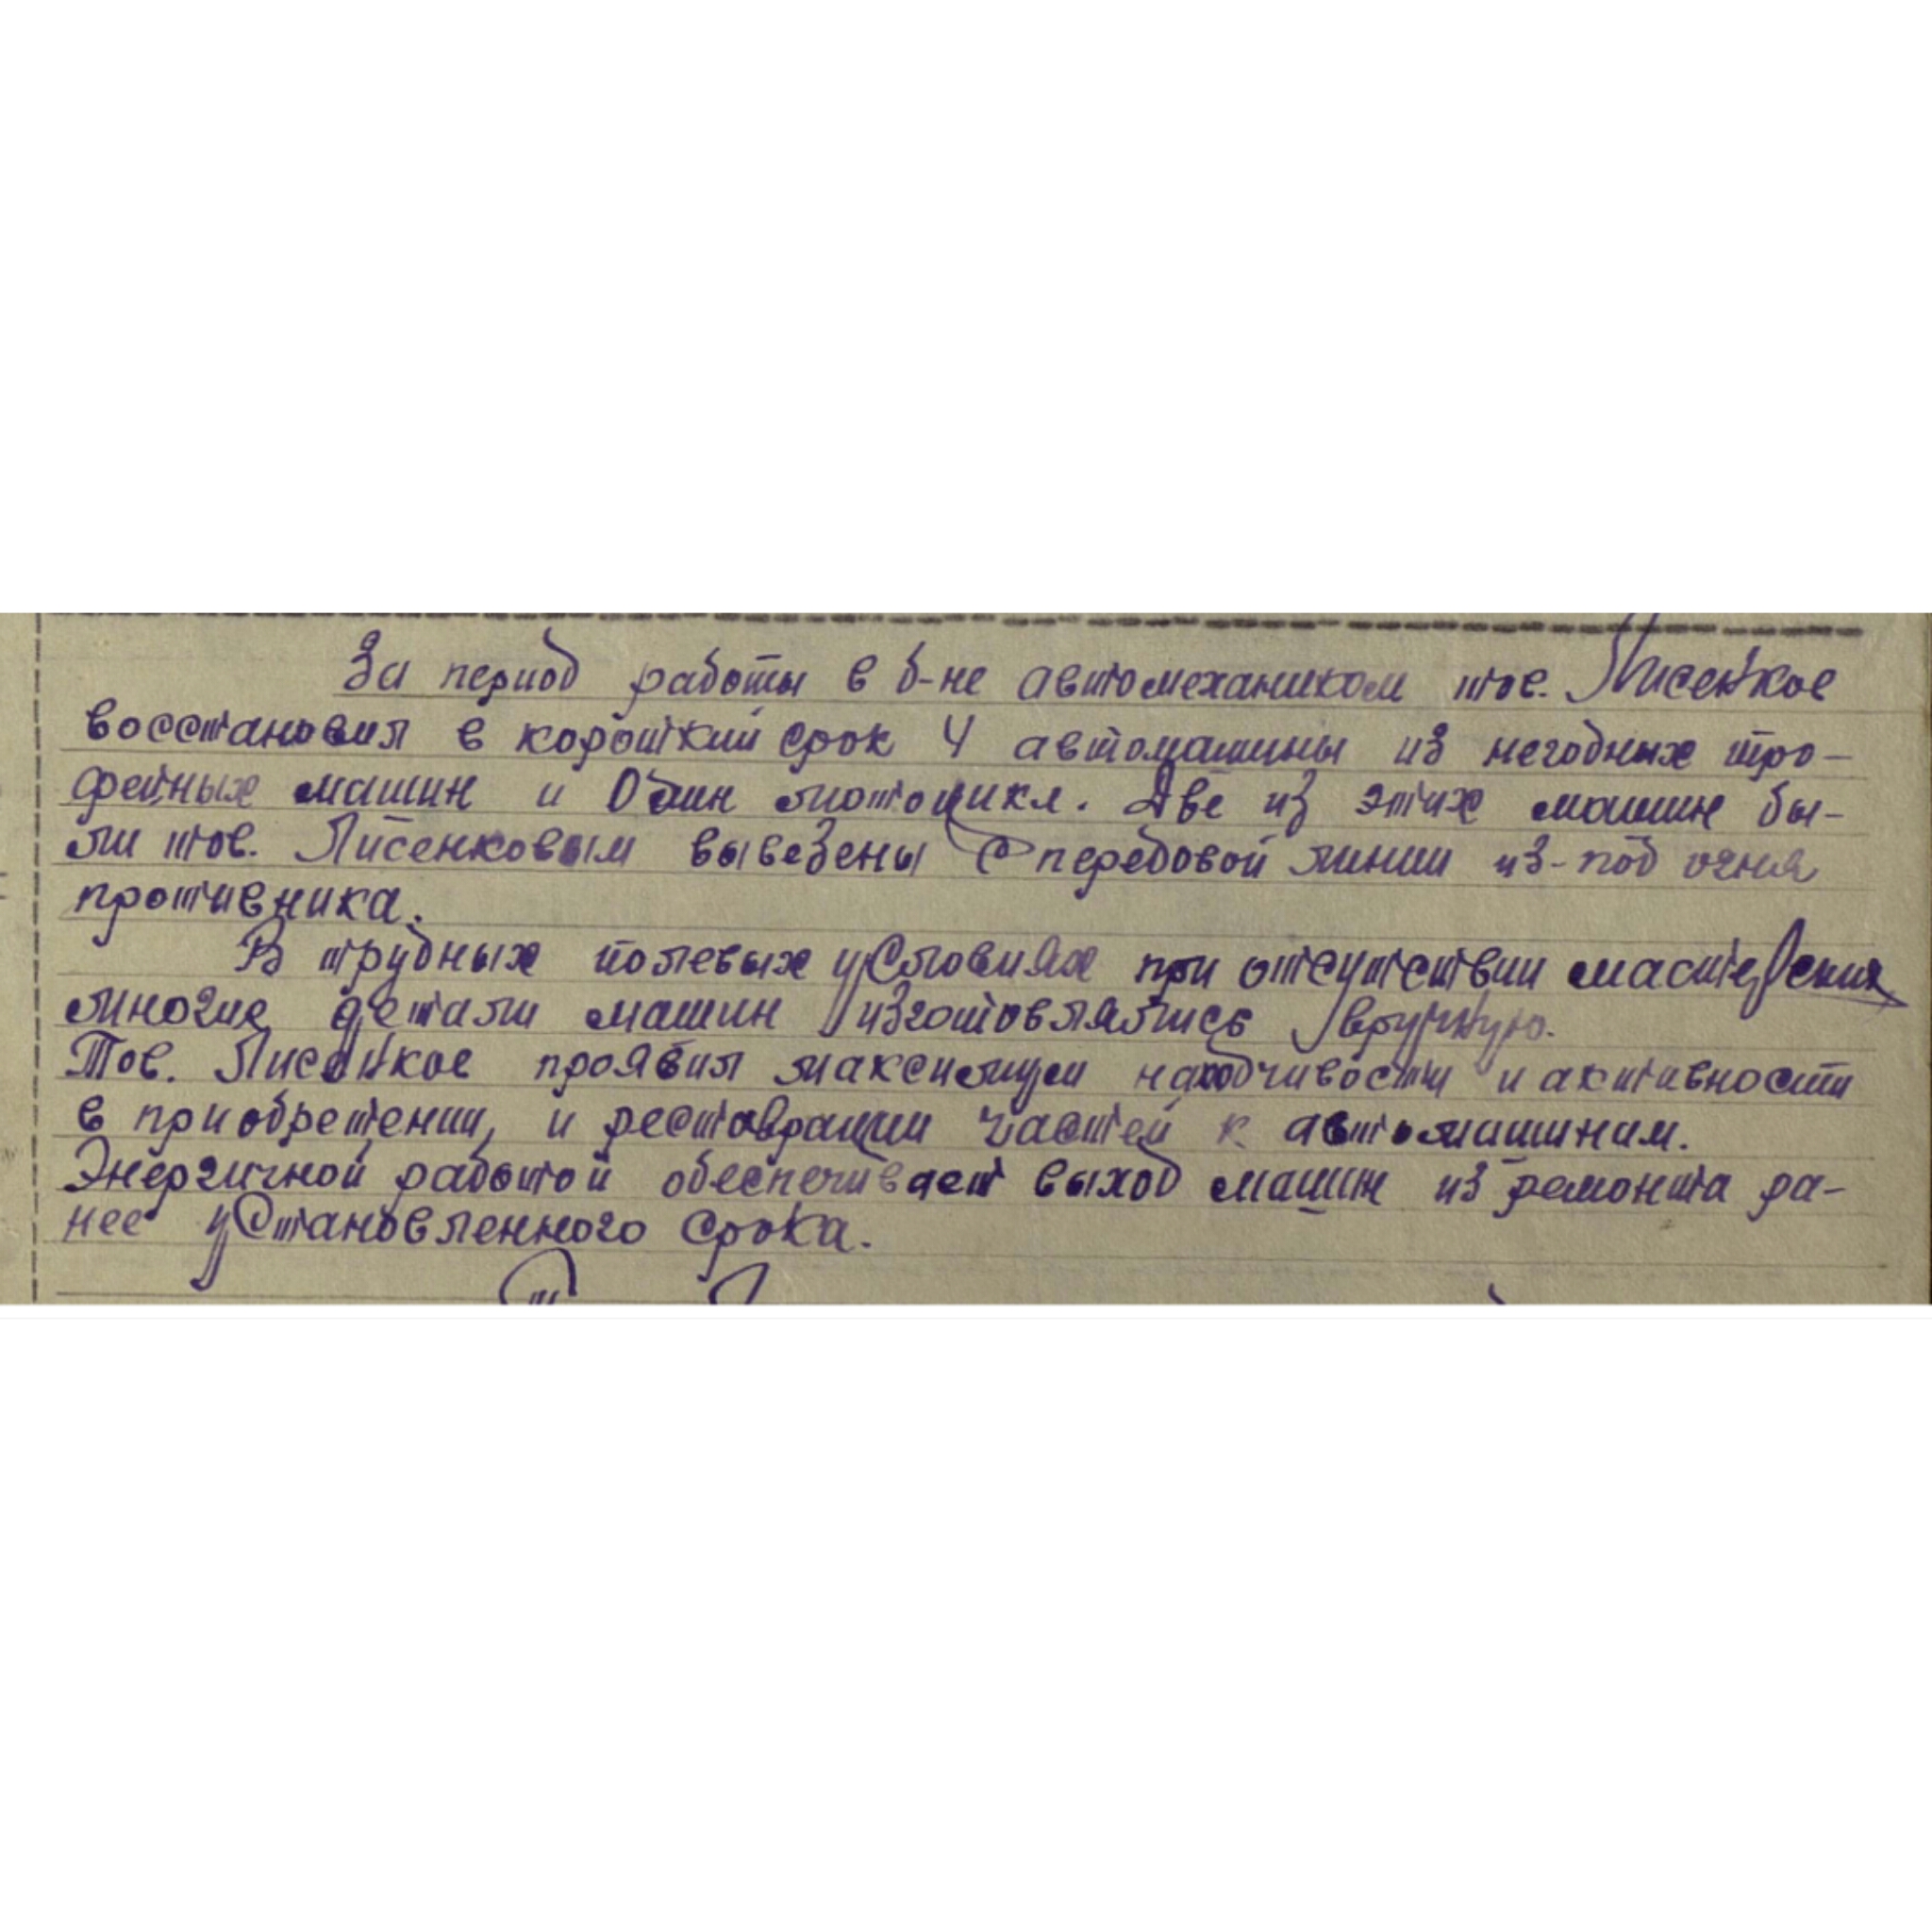 За период работы в б-не автомехаником тов. Лисенков
восстановил в короткий срок 4 автомашины из негодных тро-
фейных машин и один мотоцикл. Две из этих машин бы-
ли тов. Лисенковым выведены с передовой линии из-под огня
противника.
В трудных полевых условиях при отсутствии мастерских
многие детали машин изготовлялись вручную.
Тов. Лисенков проявил максимум находчивости и активности
в приобретении, и реставрации частей к автомашинам.
Энергичной работой обеспечивает выход машин из ремонта ра-
нее установленного срока.